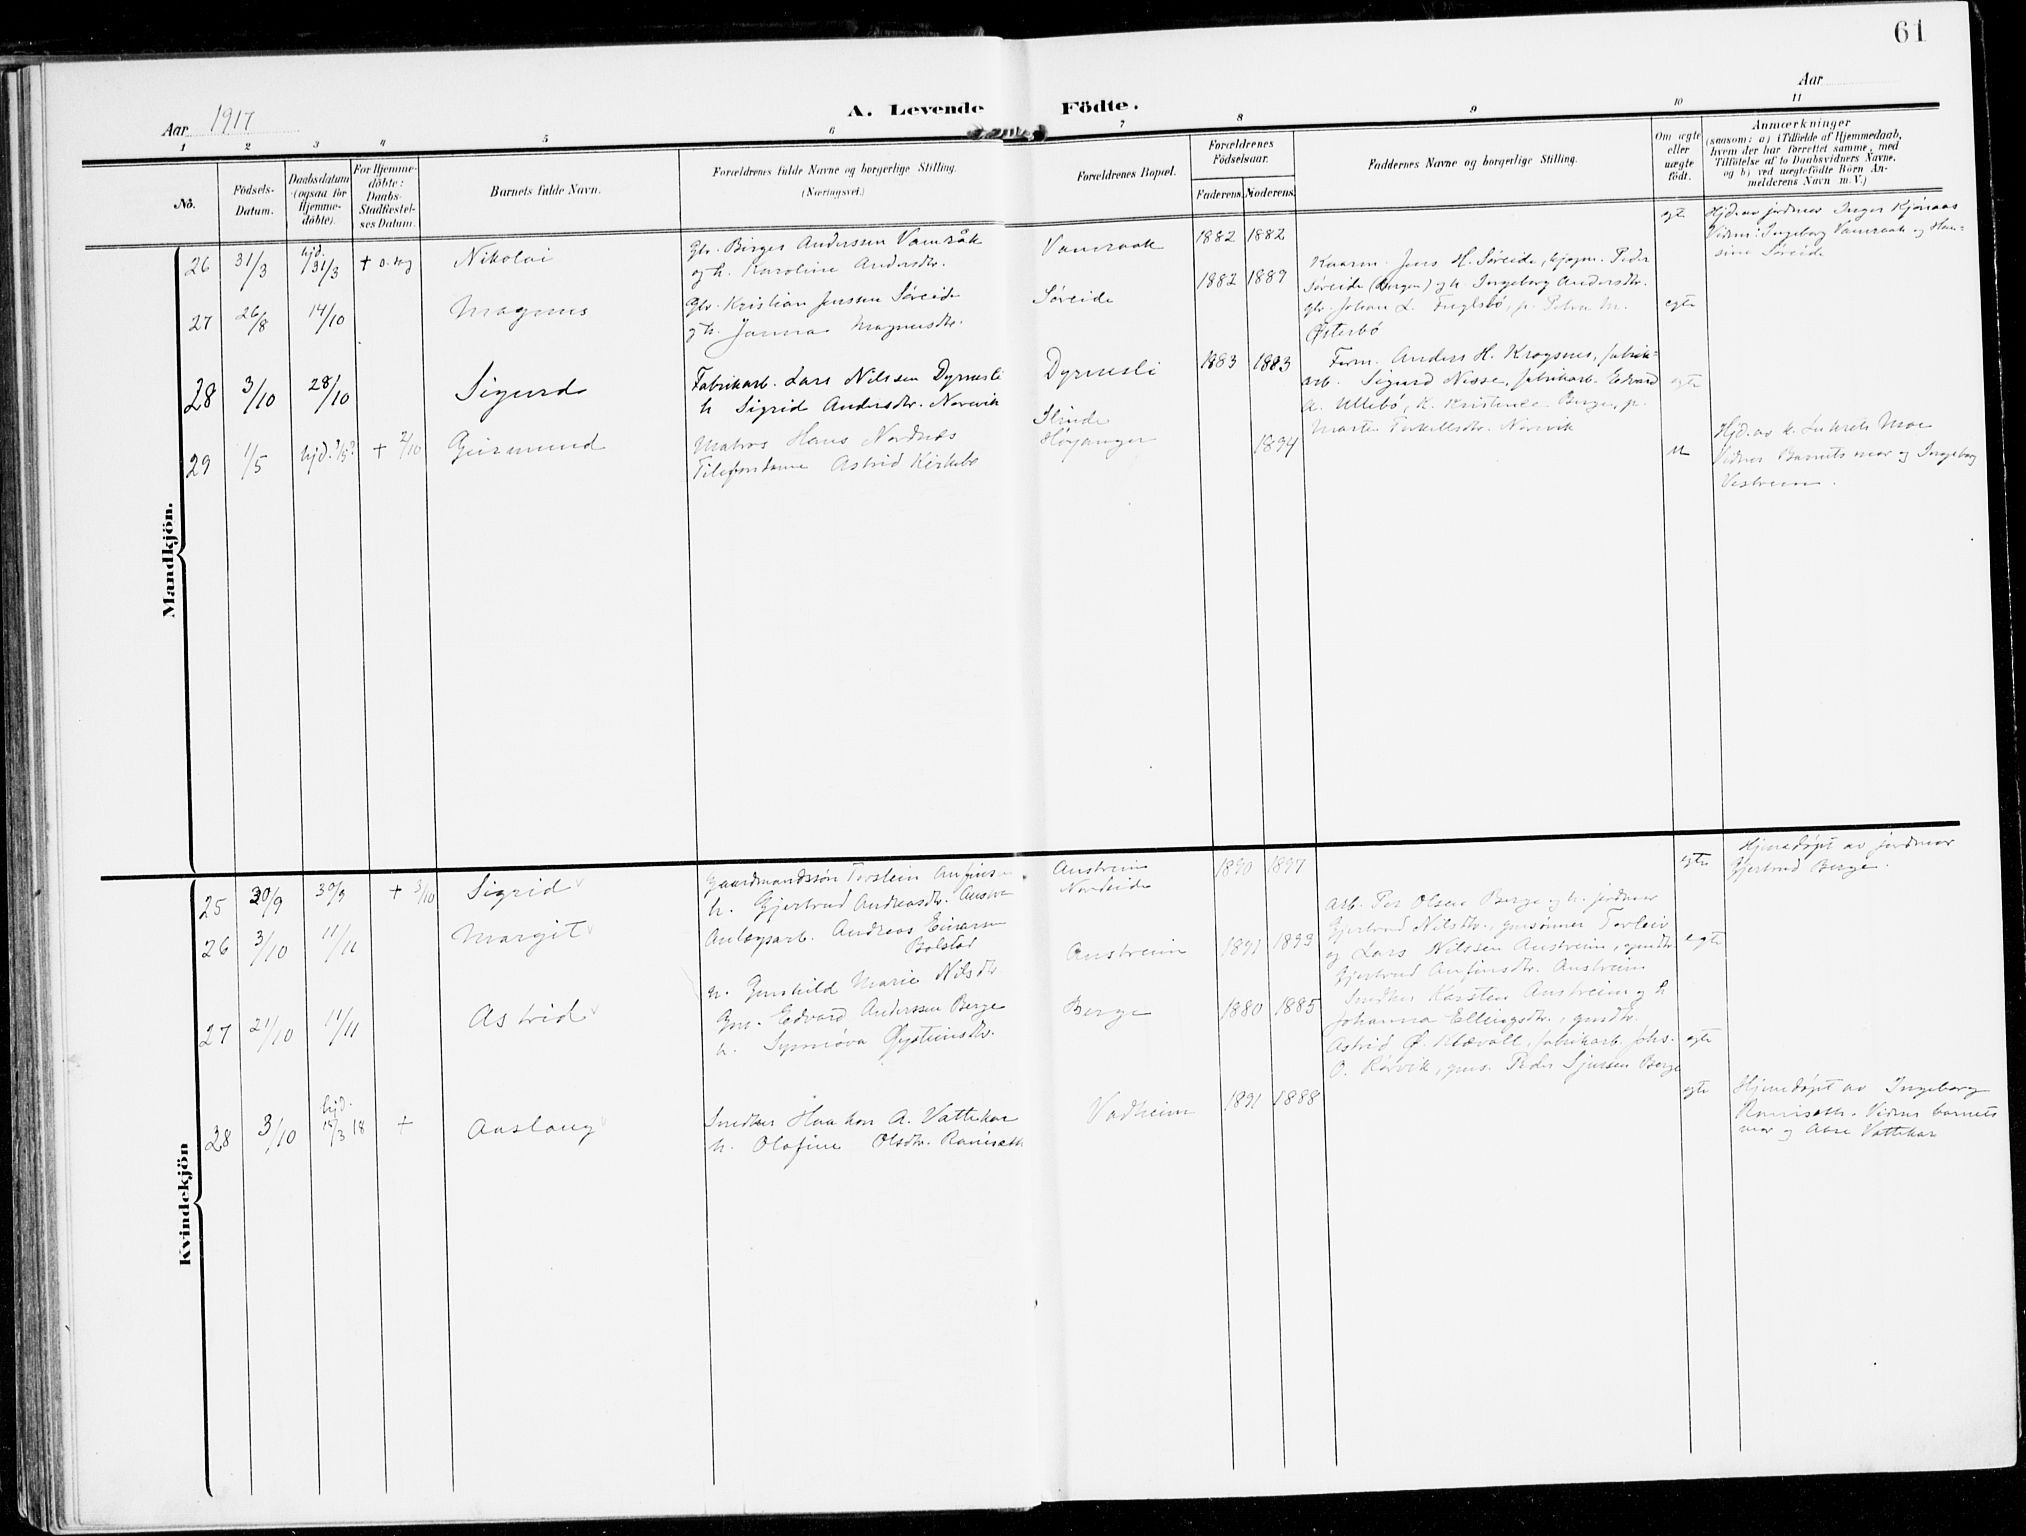 61
Aar 1917
A. Levende Födte.
Aar
1 2 3 4 5 6 7 8 9 10 11
No.
Födsels-Datum.
Daabsdatum (ogsaa for Hjemmedöbte).
For Hjemmedöbte: Daabs-Stadfæstelses Datum.
Barnets fulde Navn.
Forældrenes fulde Navne og borgerlige Stilling.
(Næringsvei.)
Forældrenes Bopæl.
Forældrenes Födselsaar.
Faderens. Moderens.
Faddernes Navne og borgerlige Stilling.
Om ægte eller uægte födt.
Anmærkninger
(saasom: a) i Tilfælde af Hjemmedaab,
hvem der har forrettet samme, med
Tilföielse af to Daabsvidners Navne.
og b) ved uægtefödte Börn An-
melderens Navn m. V.)
Mandkjön.
26 31/3 hjd. 31/3 + Nikolai
Gbr. Birger Anderssen Vamråk
og h. Karoline Andersdtr.
Vamraak 1882 1882
egte
Hjd. av jordmor Inger Kjönaas
Vidner: Ingeborg Vamraak og Han-
sine Søreide
27 26/8 14/10 Magnus
Gbr. Kristian Jenssen Søreide
og h. Janna Magnusdtr.
Søreide 1882 1889
Kaarm. Jens H. Søreide, kjøpm. Peder
Søreide (Bergen) og h. Ingeborg Andersdtr.
gbr. Johan L. Fuglsbø, p. Petra M.
Østerbø
egte
28 3/10 28/10 Sigurd
Fabrikarb. Lars Nilssen Dyrnesli
h. Sigrid Andersdtr. Norevik
Dyrnesli 1883 1883
Form. Anders H. Krogsnes, fabrik-
arb. Sigurd Nesse, fabrikarb. Edvard
A. Ullebø, k. Kristense Berge, p.
Marta Torkellsdtr. Norevik
egte
29 1/5 hjd. + 2/10 Geirmund
Matros Hans Nordnes
Telefondame Astrid Kirkebø
Høyanger 1894
u
Hjd. av k. Moe
Vidner Barnets mor og Ingeborg
Vestreim.
Kvindekjön
25 30/9 30/9 + 3/10 Sigrid
Gaardmandssøn Torstein Anfins
h. Gjertrud Andreasdtr.
Austreim
Nordeide
1890 1897
egte
Hjemedøpt av jordmor
Gjertrud Berge.
26 3/10 11/11 Margit
Anlegsarb. Andreas Einarsen
Bolstad
h. Gunhild Marie Nilsdtr
Austreim 1891 1893
Arb. Per Olsen Berge og h. jordmor
Gjertrud Nilsdtr., gmsønner Torleiv
og Lars Nilssen Austreim, gmdtr.
Gjertrud Anfinsdtr. Austreim
egte
27 21/10 11/11 Astrid
Gm. Edvard Anderssen Berge
h. Synnøva Øysteinsdtr.
Berge 1880 1885
Smedkar Karsten Austreim og h
Johanna Ellingsdtr., gmdtr.
Astrid Ø. Klævoll, fabrikarb. Johs.
O. Rørvik, gms. Peder Sjursen Berge
egte
28 3/10 hjd. 15/3 18 + Aaslaug
Smedkar Haakon A. Vattekar
h. Olafine Olsdtr. Ramseth
Vadheim 1891 1888
egte
Hjemedøpt av Ingeborg
Ramseth. Vidner barnets
mor og Vattekar